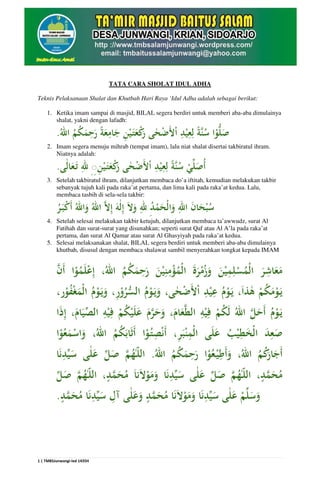 TA'MIR MASJID BAITUS SALAM
DESA JUNWANGI, KRIAN, SIDOARJO
http ://www.tmbsalamjunwangi.wordpress.com/
email: tmbaitussalamjunwangi@yahoo.com
TATA CARA SHOLAT IDUL ADHA
Teknis Pelaksanaan Shalat dan Khutbah Hari Raya 'Idul Adha adalah sebagai berikut:
1. Ketika imam sampai di masjid, BILAL segera berdiri untuk memberi aba-aba dimulainya
shalat, yakni dengan lafadh:
صَلُّوْا سُنَّةً لِعِيْدِ الْأَضْحَى رَكْعَتَيْنِ جَامِعَةً رَحِمَكُمُ اللهُ.
2. Imam segera menuju mihrab (tempat imam), lalu niat shalat disertai takbiratul ihram.
Niatnya adalah:
أُصَلِّيْ سُنَّةً لِعِيْدِ الْأَضْحَى رَكْعَتَيْنِ لِلَّهِ تَعَالَى.
3. Setelah takbiratul ihram, dilanjutkan membaca do'a iftitah, kemudian melakukan takbir
sebanyak tujuh kali pada raka'at pertama, dan lima kali pada raka'at kedua. Lalu,
membaca tasbih di sela-sela takbir:
سُبْحَانَ اللهِ وَالْحَمْدُ لِلَّهِ وَلَا إِلَهَ إِلَّا اللهُ وَاللهُ أَكْبَرُ
4. Setelah selesai melakukan takbir ketujuh, dilanjutkan membaca ta'awwudz, surat Al
Fatihah dan surat-surat yang disunahkan; seperti surat Qaf atau Al A'la pada raka'at
pertama, dan surat Al Qamar atau surat Al Ghasyiyah pada raka'at kedua.
5. Selesai melaksanakan shalat, BILAL segera berdiri untuk memberi aba-aba dimulainya
khutbah, disusul dengan membaca shalawat sambil menyerahkan tongkat kepada IMAM
مَعَاشِرَ الْمُسْلِمِيْنَ وَزُمْرَةَ الْمُؤْمِنِيْنَ رَحِمَكُمُ اللهُ، اِعْلَمُوْا أَنَّ
يَوْمَكُمْ هَذَا، يَوْمُ عِيْدِ الْأَضْحَى، وَيَوْمُ السُّرُوْرِ، وَيَوْمُ الْمَغْفُوْرِ،
يَوْمُ أَحَلَّ اللهُ لَكُمْ فِيْهِ الطَّعَامَ، وَحَرَّمَ عَلَيْكُمْ فِيْهِ الصِّيَامَ، إِذَا
صَعِدَ الْخَطِيْبُ عَلَى الْمِنْبَرِ، أَنْصِتُوْا أَثَابَكُمُ اللهُ، وَاسْمَعُوْا
أَجَارَكُمُ اللهُ، وَأَطِيْعُوْا رَحِمَكُمُ اللهُ. اَللَّهُمَّ صَلِّ عَلَى سَيِّدِنَا
مُحَمَّدٍ، اَللَّهُمَّ صَلِّ عَلَى سَيِّدِنَا وَمَوْلَانَا مُحَمَّدٍ، اَللَّهُمَّ صَلِّ
وَسَلِّمْ عَلَى سَيِّدِنَا وَمَوْلَانَا مُحَمَّدٍ وَعَلَى آلِ سَيِّدِنَا مُحَمَّدٍ.